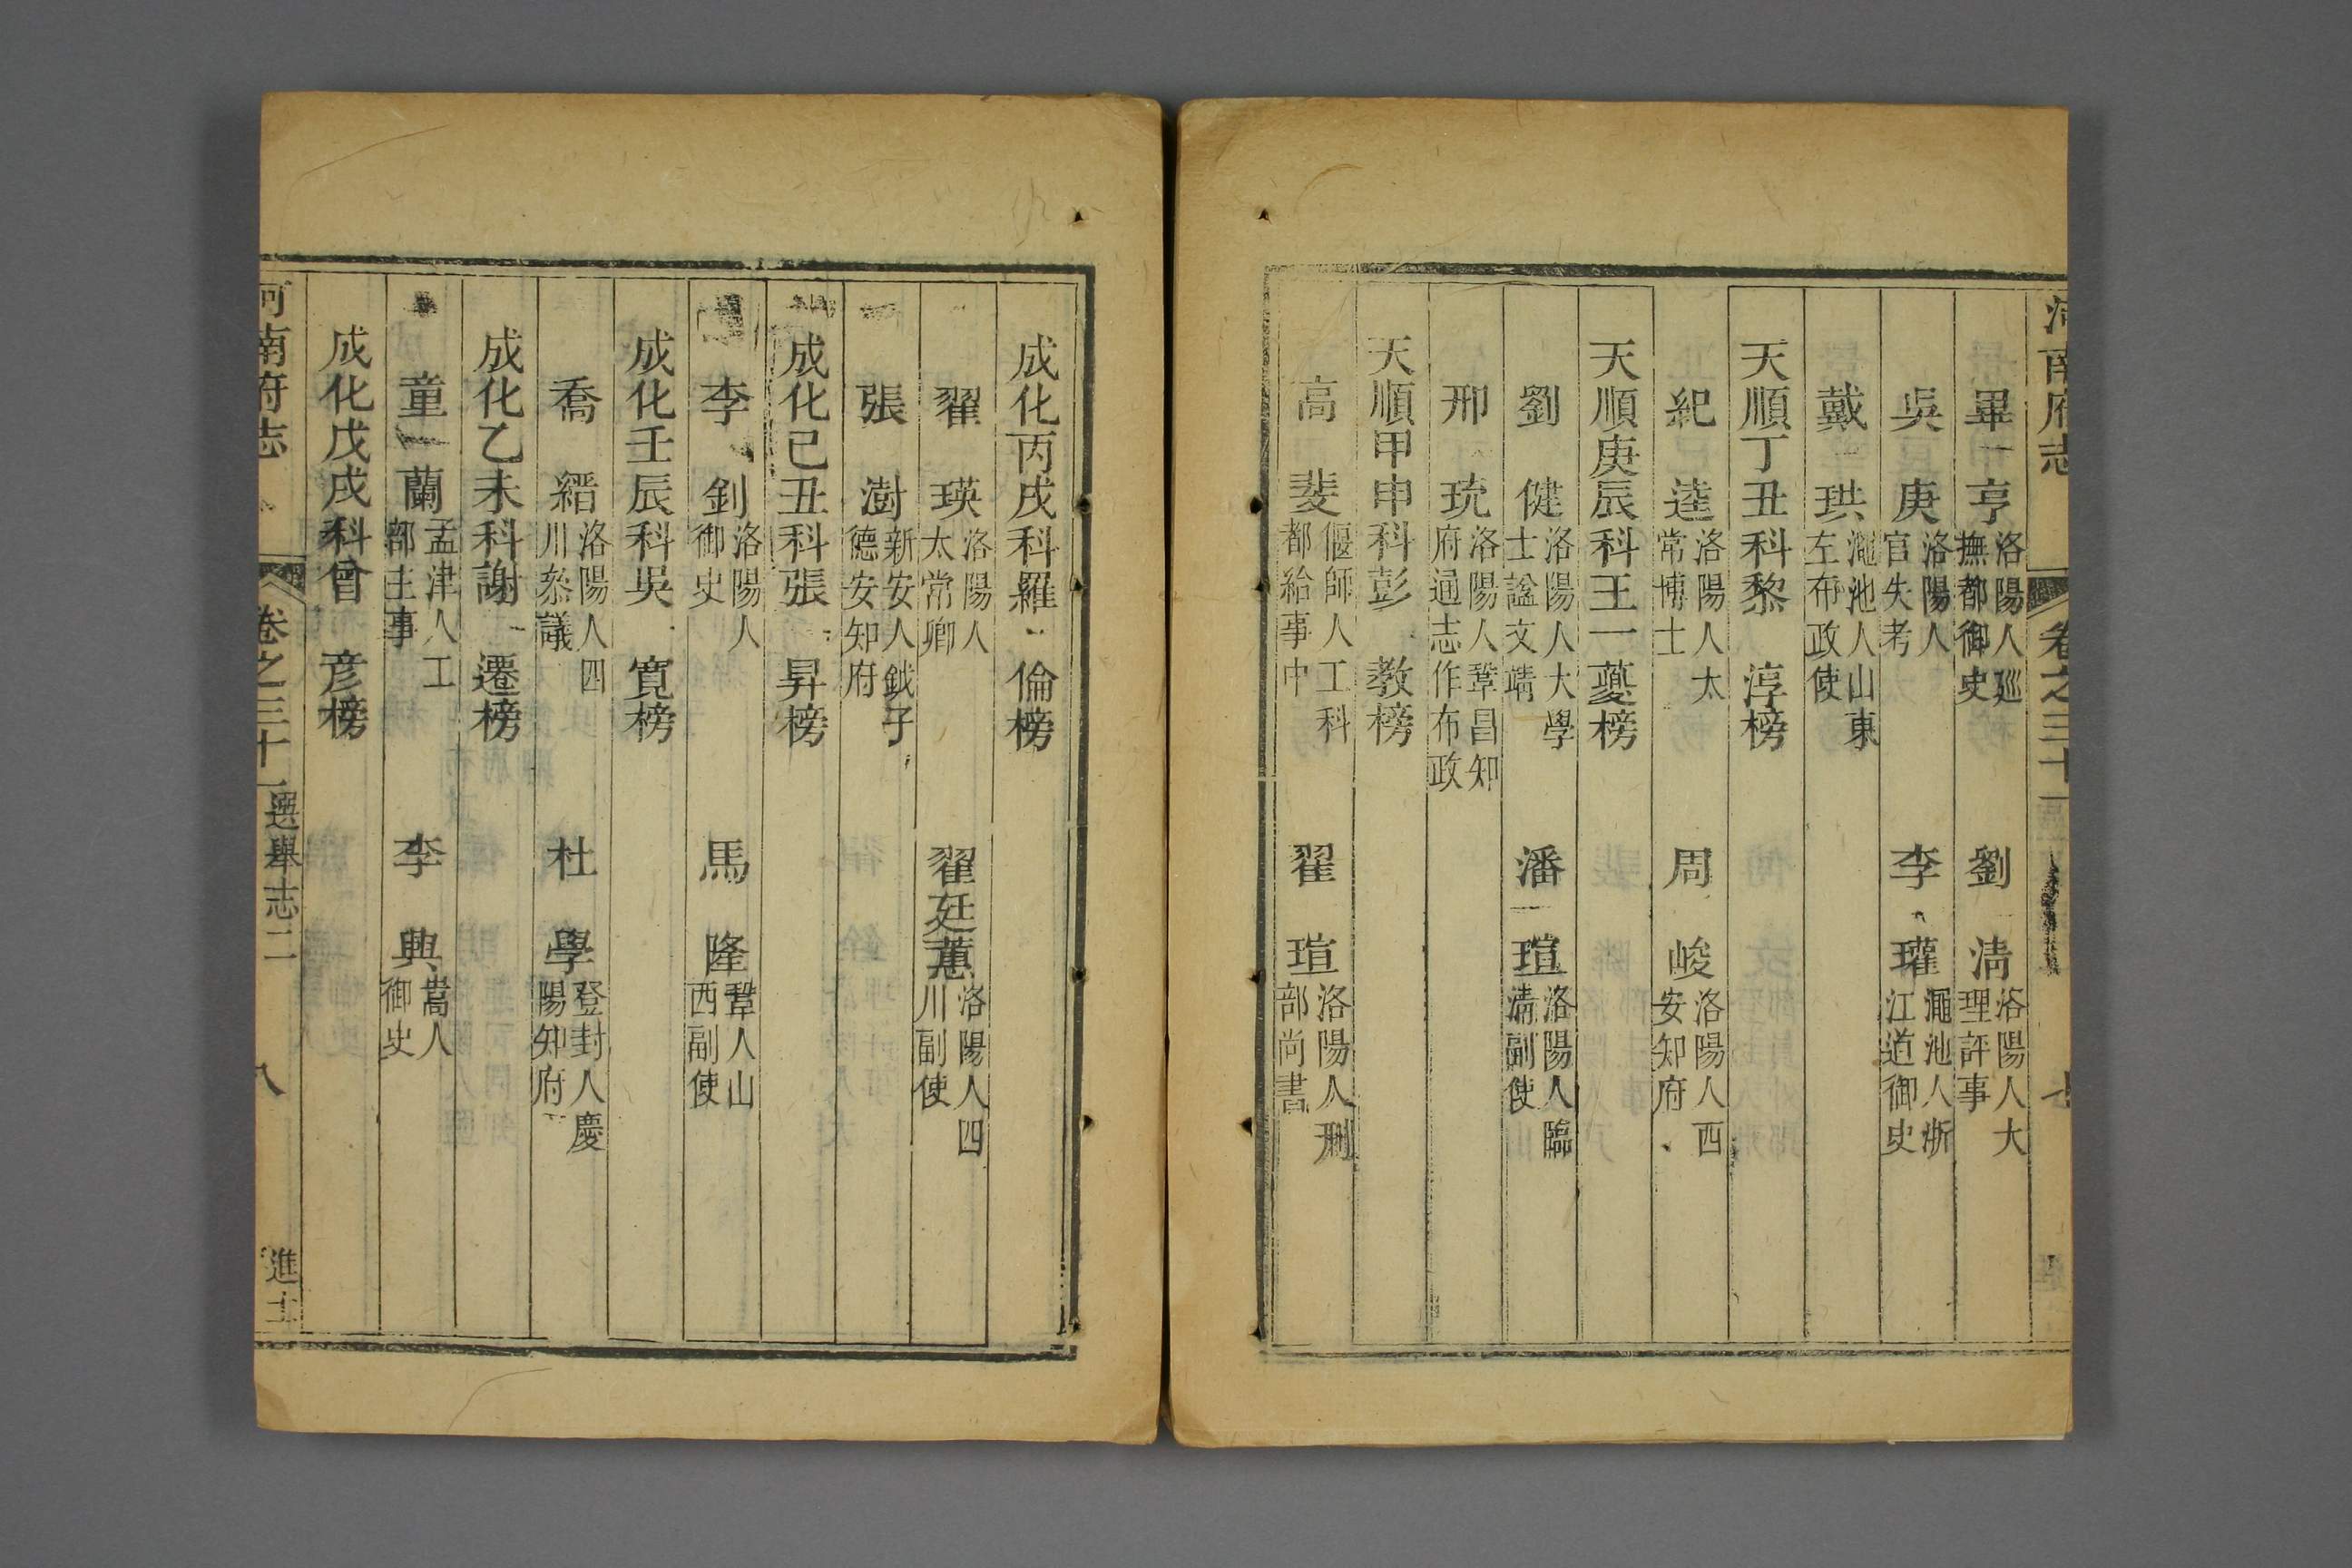 河南府志 卷之三十一 七
畢 亨 洛陽人廵撫都御史 劉 清 洛陽人大理評事
吳 庚 洛陽人官失考 李 瓘 澠池人浙江道御史
戴 珙 澠池人山東左布政使
天順丁丑科黎 淳榜
紀 達 洛陽人太常博士 周 峻 洛陽人西安知府
天順庚辰科王一夔榜
劉 健 洛陽人大學士諡文靖 潘 瑄 洛陽人臨清副使
邢 珫 洛陽人鞏昌知府通志作布政
天順甲申科彭 教榜
高 斐 偃師人工科都給事中 翟 瑄 洛陽人刑部尚書
成化丙戌科羅 倫榜
翟 瑛 洛陽人太常卿 翟廷蕙 洛陽人四川副使
張 澍 新安人鉞子德安知府
成化己丑科張 昇榜
李 釗 洛陽人御史 馬 隆 鞏人山西副使
成化壬辰科吳 寬榜
喬 縉 洛陽人四川叅議 杜 學 登封人慶陽知府
成化乙未科謝 遷榜
童 蘭 孟津人工部主事 李 興 嵩人御史
成化戊戌科曾 彥榜
河南府志 卷之三十一 選舉志二 八 進士